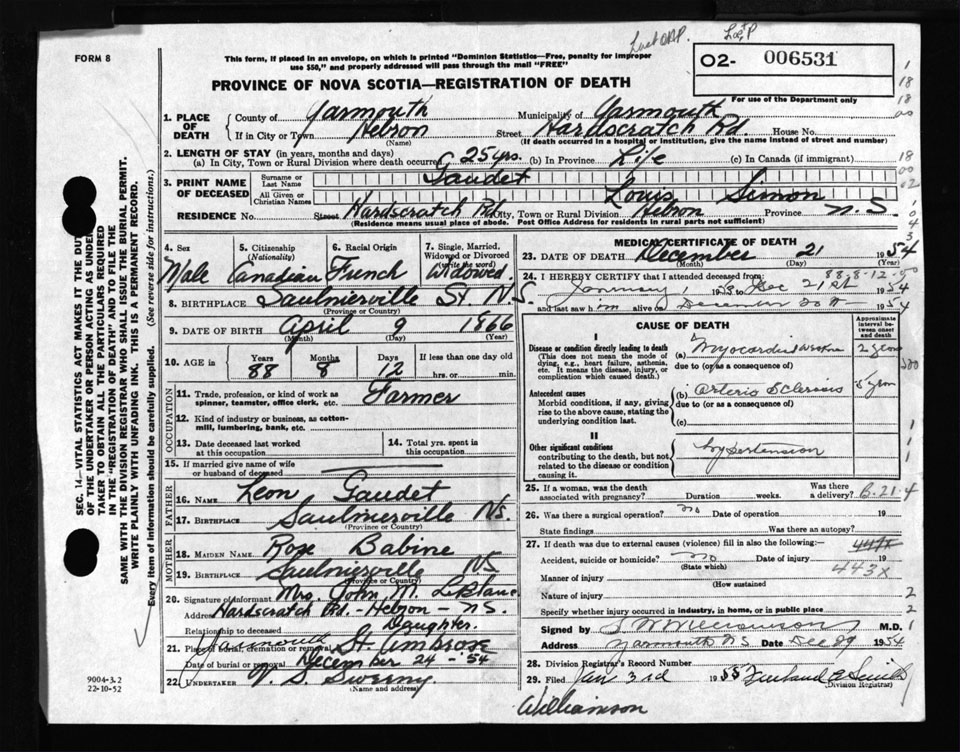 Last ORP. Loc P
FORM 8
This form, if placed in an envelope, on which is printed "Dominion Statistics—Free, penalty for improper
use $50," and properly addressed will pass through the mail "FREE"
O2- 006531
For use of the Department only
PROVINCE OF NOVA SCOTIA—REGISTRATION OF DEATH
1. PLACE OF DEATH
County of Yarmouth Municipality of Yarmouth
If in City or Town Hebron (Name) Street Hardscratch Rd. House No.
(If death occurred in a hospital or institution, give the name instead of street and number)
2. LENGTH OF STAY (in years, months and days)
(a) In City, Town or Rural Division where death occurred 25 yrs. (b) In Province Life (c) In Canada (if immigrant)
3. PRINT NAME OF DECEASED
Surname or Last Name Gaudet
All Given or Christian Names Louis Simon
RESIDENCE No. Street Hardscratch Rd City, Town or Rural Division Hebron Province N.S.
(Residence means usual place of abode. Post Office Address for residents in rural parts not sufficient)
4. Sex Male
5. Citizenship (Nationality) Canadian
6. Racial Origin French
7. Single, Married, Widowed or Divorced (write the word) Widowed
8. BIRTHPLACE Saulnierville St. N.S.
(Province or Country)
9. DATE OF BIRTH April 9 1866
(Month) (Day) (Year)
10. AGE in Years 88 Months 8 Days 12 If less than one day old hrs. or min.
OCCUPATION
11. Trade, profession, or kind of work as spinner, teamster, office clerk, etc. Farmer
12. Kind of industry or business, as cotton-mill, lumbering, bank, etc.
13. Date deceased last worked at this occupation
14. Total yrs. spent in this occupation
15. If married give name of wife or husband of deceased
FATHER
16. NAME Leon Gaudet
17. BIRTHPLACE Saulnierville NS.
(Province or Country)
MOTHER
18. MAIDEN NAME Rose Babine
19. BIRTHPLACE Saulnierville NS
(Province or Country)
20. Signature of informant Mrs. John M. LeBlanc
Address Hardscratch Rd. - Hebron - NS.
Relationship to deceased Daughter.
21. Place of burial, cremation or removal Yarmouth St. Ambrose
Date of burial or removal December 24 - '54
22. UNDERTAKER V. S. Sweeny
(Name and address)
MEDICAL CERTIFICATE OF DEATH
23. DATE OF DEATH December 21 1954
(Month) (Day) (Year)
88-8-12
24. I HEREBY CERTIFY that I attended deceased from:
January 1 1953 to Dec 21st 1954
and last saw him alive on December 20th 1954
CAUSE OF DEATH
Approximate interval between onset and death
I
Disease or condition directly leading to death
(This does not mean the mode of dying, e.g., heart failure, asthenia, etc. It means the disease, injury, or complication which caused death.)
(a) Myocardial
2 years
due to (or as a consequence of)
Antecedent causes
Morbid conditions, if any, giving rise to the above cause, stating the underlying condition last.
(b) Arterio Sclerosis
due to (or as a consequence of)
(c)
II
Other significant conditions
contributing to the death, but not related to the disease or condition causing it.
hypertension
25. If a woman, was the death associated with pregnancy? Duration weeks. Was there a delivery?
26. Was there a surgical operation? no Date of operation 19
State findings Was there an autopsy?
27. If death was due to external causes (violence) fill in also the following:— 447X
Accident, suicide or homicide? no (State which) Date of injury 19
443X
Manner of injury
(How sustained)
Nature of injury
Specify whether injury occurred in industry, in home, or in public place
Signed by M.D.
Address Yarmouth NS Date Dec 29 1954
28. Division Registrar's Record Number
29. Filed Jan 3rd 1955
(Division Registrar)
Williamson
9004-3.2
22-10-52
SEC. 14.—VITAL STATISTICS ACT MAKES IT THE DUTY
OF THE UNDERTAKER OR PERSON ACTING AS UNDER-
TAKER TO OBTAIN ALL THE PARTICULARS REQUIRED
IN THE "REGISTRATION OF DEATH" AND TO FILE THE
SAME WITH THE DIVISION REGISTRAR WHO SHALL ISSUE THE BURIAL PERMIT.
WRITE PLAINLY WITH UNFADING INK. THIS IS A PERMANENT RECORD.
Every item of information should be carefully supplied. (See reverse side for instructions.)